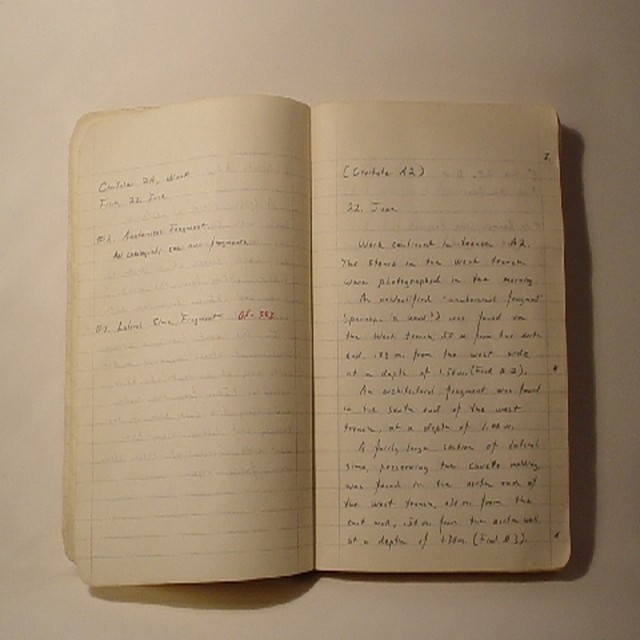 From 22 June
#2. Anatomical Fragment
#3. Lateral Sima Fragment AF-383
2.
A2)
22. June
Work continued in trench A2.
The stones in the west trench
were photographed in the morning
An unidentified "anatomical fragment"
was found in
the west trench, m from the south
end, m from the west side
at a depth of 1.30m (Find # 2).
An architectural fragment was found
in the south end of the west
trench, at a depth of m.
A fairly large section of lateral
sima, preserving the cavetto molding
was found in the north end of
the west trench, m from the
east wall, m from the north wall
at a depth of 1.30m (Find #3).